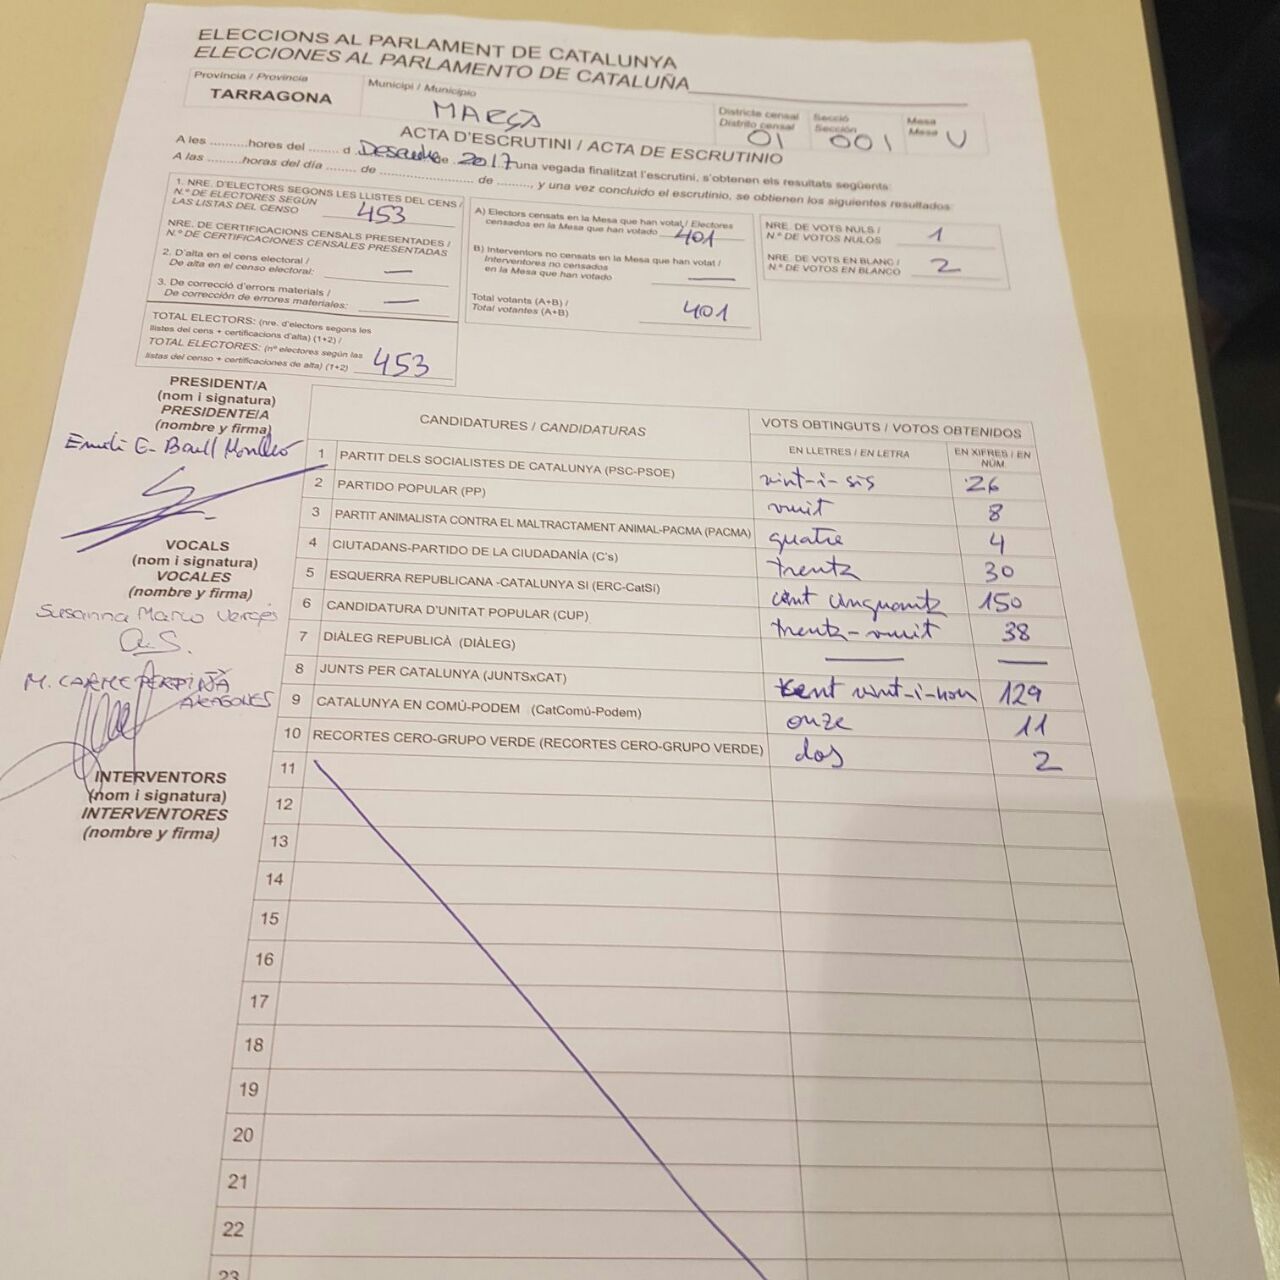 ELECCIONS AL PARLAMENT DE CATALUNYA
ELECCIONES AL PARLAMENTO DE CATALUÑA
Província / Provincia
TARRAGONA
Municipi / Municipio
MARÇÀ
Districte censal
Distrito censal
01
Secció
Sección
001
Mesa
Mesa
U
ACTA D'ESCRUTINI / ACTA DE ESCRUTINIO
A les ..........hores del ........ d Desembre de 2017 una vegada finalitzat l'escrutini, s'obtenen els resultats següents:
A las ..........horas del día ........ de ........................... de .........., y una vez concluido el escrutinio, se obtienen los siguientes resultados:
1. NRE. D'ELECTORS SEGONS LES LLISTES DEL CENS /
N.º DE ELECTORES SEGÚN
LAS LISTAS DEL CENSO 453
NRE. DE CERTIFICACIONS CENSALS PRESENTADES /
N.º DE CERTIFICACIONES CENSALES PRESENTADAS
2. D'alta en el cens electoral /
De alta en el censo electoral: —
3. De correcció d'errors materials /
De corrección de errores materiales: —
TOTAL ELECTORS: (nre. d'electors segons les
llistes del cens + certificacions d'alta) (1+2) /
TOTAL ELECTORES: (nº electores según las
listas del censo + certificaciones de alta) (1+2) 453
A) Electors censats en la Mesa que han votat / Electores
censados en la Mesa que han votado 401
B) Interventors no censats en la Mesa que han votat /
Interventores no censados
en la Mesa que han votado —
Total votants (A+B) /
Total votantes (A+B) 401
NRE. DE VOTS NULS /
N.º DE VOTOS NULOS 1
NRE. DE VOTS EN BLANC /
N.º DE VOTOS EN BLANCO 2
PRESIDENT/A
(nom i signatura)
PRESIDENTE/A
(nombre y firma)
VOCALS
(nom i signatura)
VOCALES
(nombre y firma)
Susanna Marco Vergés
M. CARME PERPIÑÀ
ARAGONES
INTERVENTORS
(nom i signatura)
INTERVENTORES
(nombre y firma)
CANDIDATURES / CANDIDATURAS
VOTS OBTINGUTS / VOTOS OBTENIDOS
EN LLETRES / EN LETRA
EN XIFRES / EN
NÚM.
1 PARTIT DELS SOCIALISTES DE CATALUNYA (PSC-PSOE) vint-i-sis 26
2 PARTIDO POPULAR (PP) vuit 8
3 PARTIT ANIMALISTA CONTRA EL MALTRACTAMENT ANIMAL-PACMA (PACMA) quatre 4
4 CIUTADANS-PARTIDO DE LA CIUDADANÍA (C's) trenta 30
5 ESQUERRA REPUBLICANA -CATALUNYA SI (ERC-CatSí) cent cinquanta 150
6 CANDIDATURA D'UNITAT POPULAR (CUP) trenta-vuit 38
7 DIÀLEG REPUBLICÀ (DIÀLEG) — —
8 JUNTS PER CATALUNYA (JUNTSxCAT) cent vint-i-nou 129
9 CATALUNYA EN COMÚ-PODEM (CatComú-Podem) onze 11
10 RECORTES CERO-GRUPO VERDE (RECORTES CERO-GRUPO VERDE) dos 2
11
12
13
14
15
16
17
18
19
20
21
22
23